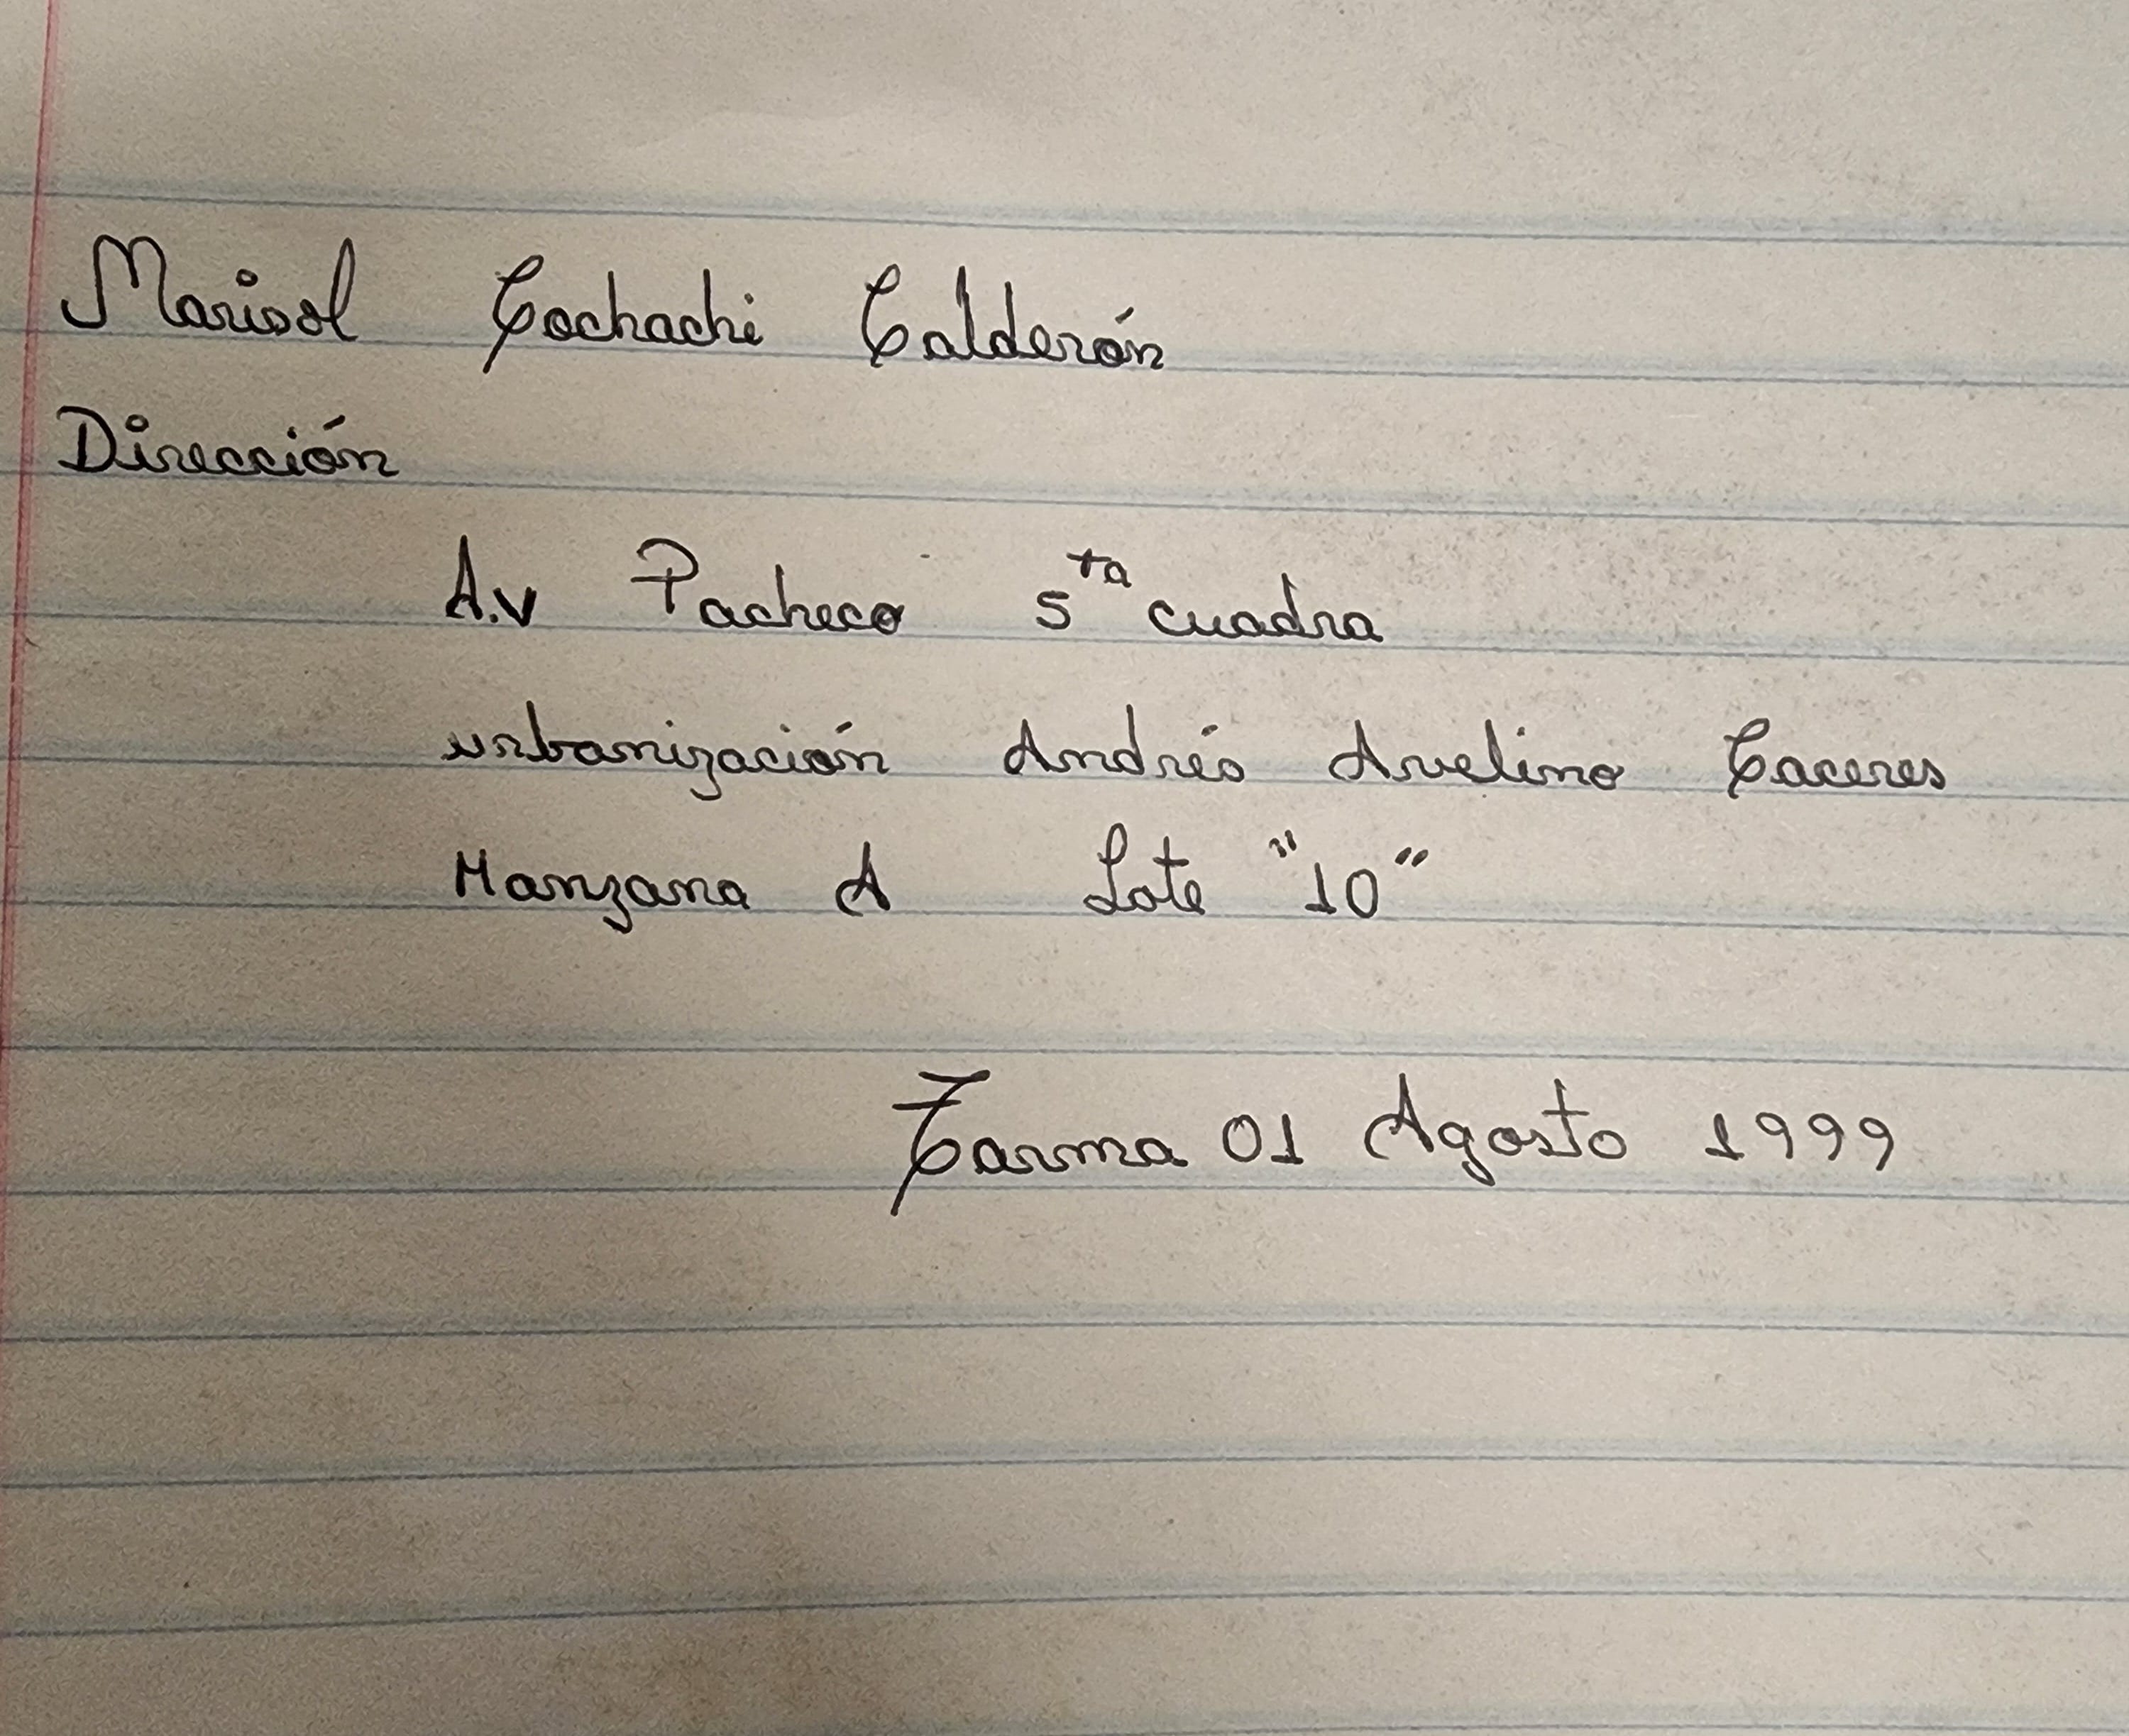 Marisol Cochachi Calderón
Dirección
A.v Pacheco 5ta cuadra
urbanización Andrés Avelino Caceres
Manzana A Lote "10"
Tarma 01 Agosto 1999